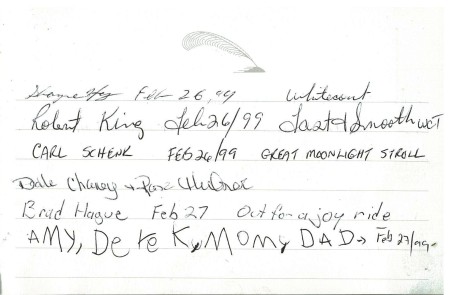 Feb 26, 99 Whitecourt
Robert King Feb 26/99 Fast & Smooth WCT
CARL SCHENK FEB 26/99 GREAT MOONLIGHT STROLL
Dale Chaney +
Brad Hague Feb 27 Out for a joy ride
AMY, DeReK, MOM, DAD Feb 27/99